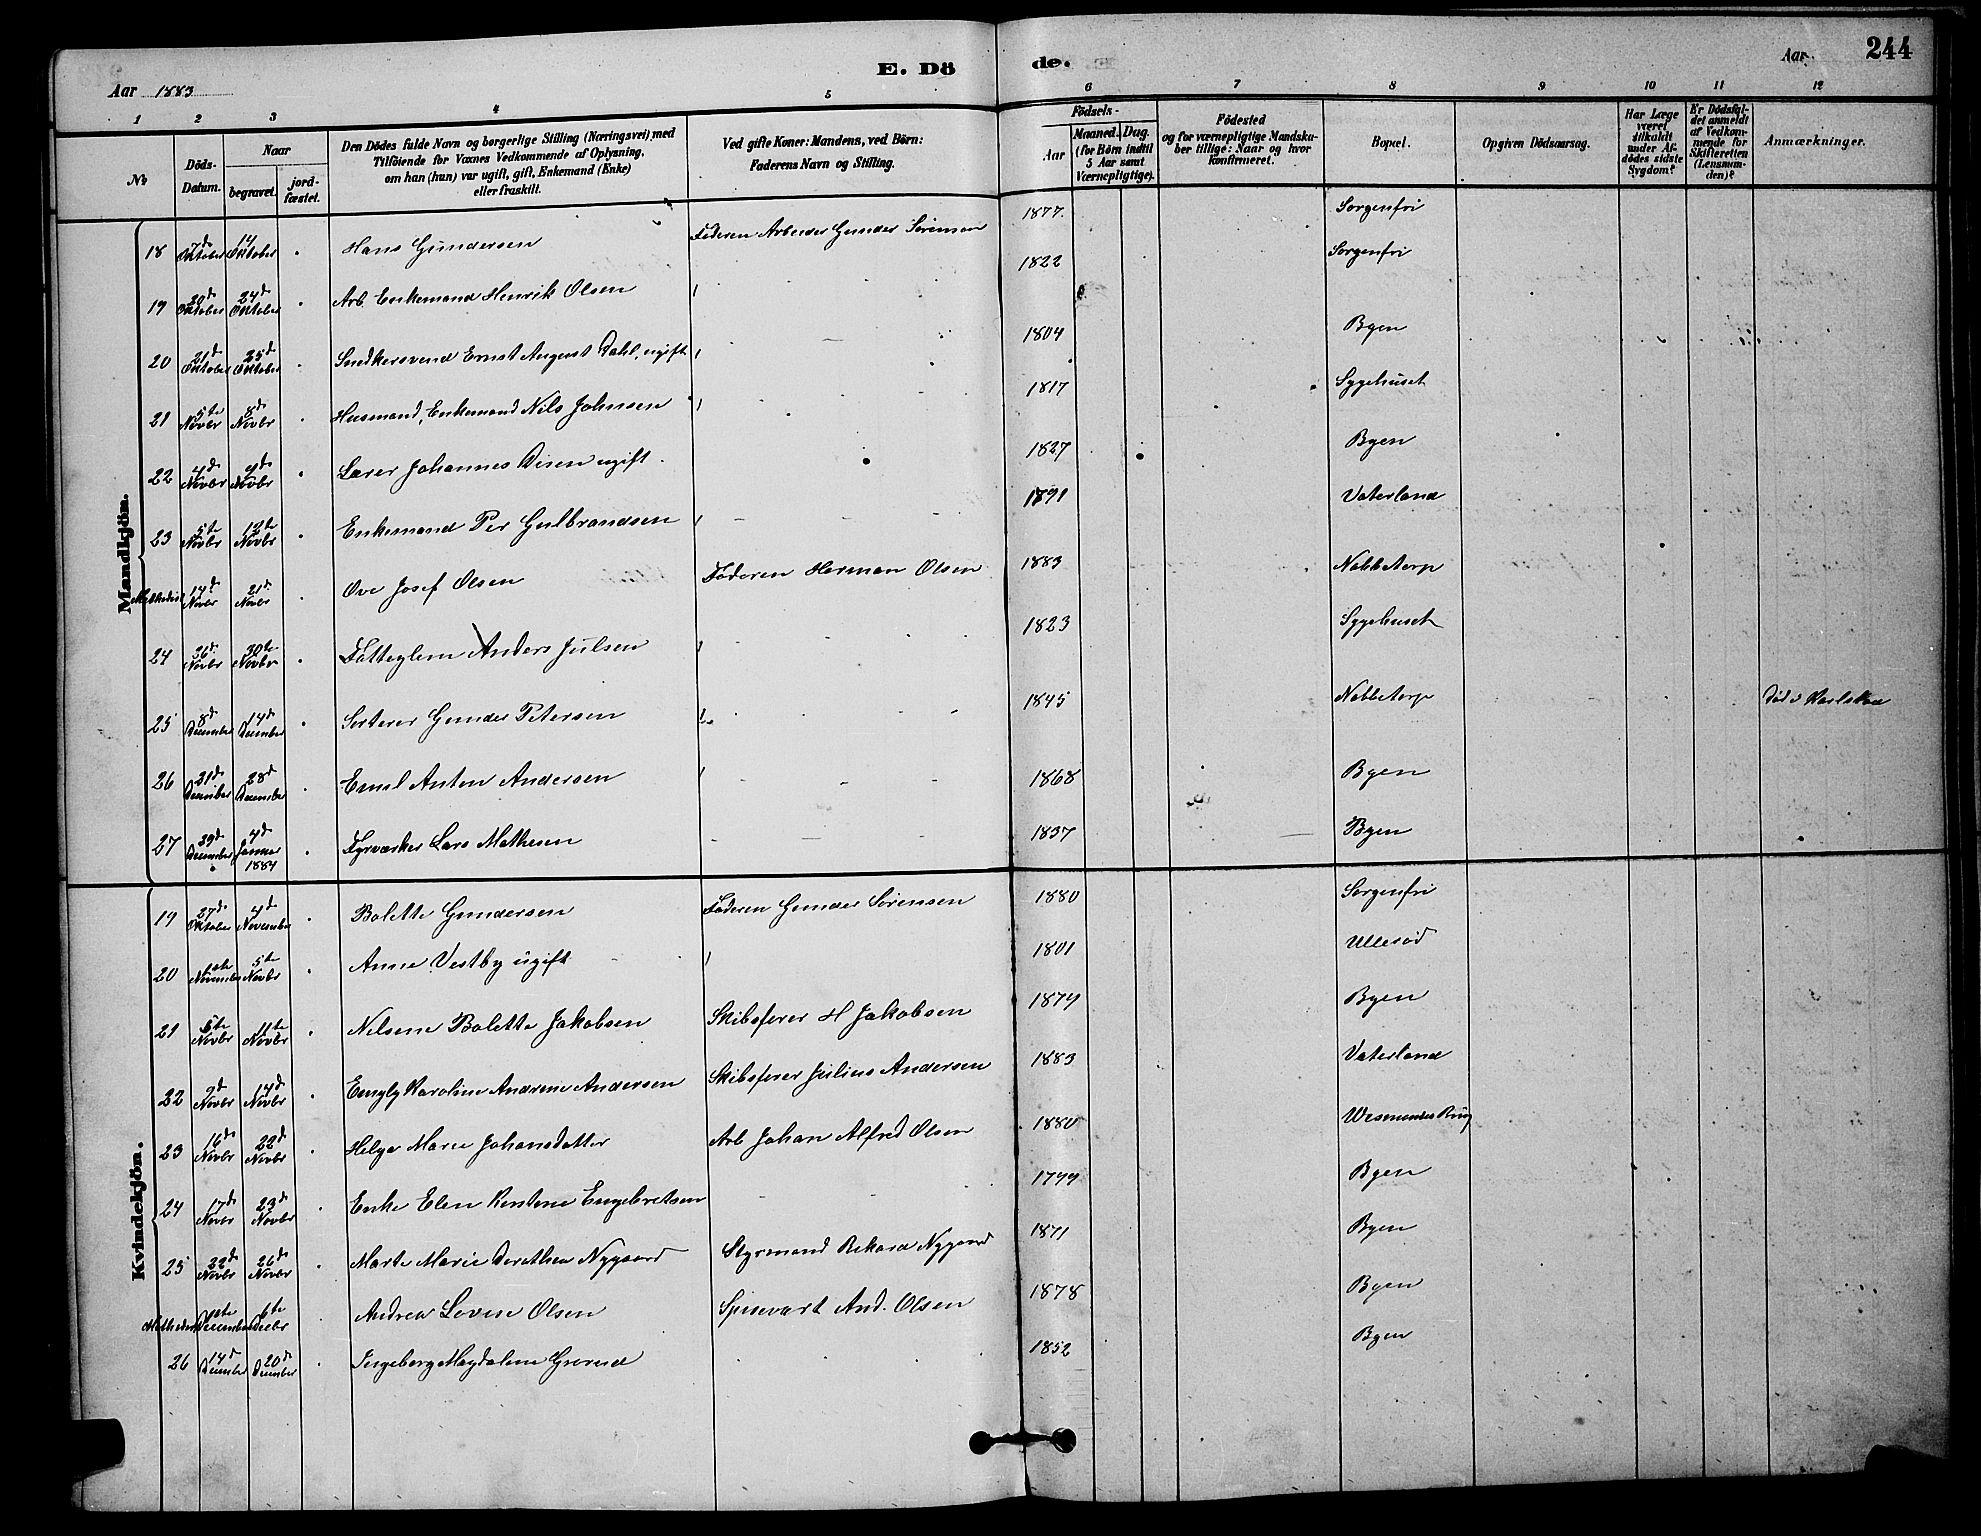 Aar 1883
E. Dö
de.
Aar
244
1 2 3 4 5 6 7 8 9 10 11 12
No
Döds-Datum.
Naar
begravet.
jordfæstet.
Den Dödes fulde Navn og borgerlige Stilling (Næringsvei), med
Tilföiende for Voxnes Vedkommende af Oplysning,
om han (hun) var ugift, gift, Enkemand (Enke)
eller fraskilt.
Ved gifte Koner: Mandens, ved Börn:
Faderens Navn og Stilling.
Födsels-
Aar
Maaned. Dag.
(for Börn indtil
5 Aar samt
Værnepligtige).
Födested
og for værnepligtige Mandska-
ber tillige: Naar og hvor
konfirmeret.
Bopæl.
Opgiven Dödsaarsag.
Har Læge
været
tilkaldt
under Af-
dödes sidste
Sygdom?
Er Dödsfal-
det anmeldt
af Vedkom-
mende for
Skifteretten
(Lensman-
den)?
Anmærkninger.
Mandkjön.
18 7d Oktober 14 Oktober Hans Gundersen Faderen Arbeider Gunder Sörensen 1877 Sorgenfri
19 20d Oktober 24d Oktober Arb. Enkemand Henrik Olsen 1822 Sorgenfri
20 21d Oktober 25d Oktober Snedkersvend Ernst August Dahl, ugift 1804 Byen
21 5te Novbr 8d Novbr Husmand, Enkemand Nils Johnsen 1817 Sygehuset
22 4d Novbr 9d Novbr Lærer Johannes Disen ugift 1827 Byen
23 5te Novbr 12te Novbr Enkemand Per Gulbrandsen 1891 Vaterland
Methodist 14d Novbr 21d Novbr Ove Josef Olsen Faderen Herman Olsen 1883 Nabbetorp
24 26d Novbr 30te Novbr Fattiglem Anders Julsen 1823 Sygehuset
25 8d December 14d December Sorterer Gunder Petersen 1845 Nabbetorp Död i Karlskoa
26 21d December 28d December Emil Anton Andersen 1868 Byen
27 29d December 4d Januar 1884 Fyrværker Lars Mathesen 1837 Byen
Kvindekjön.
19 27d Oktober 4d November Bolette Gundersen Faderen Gunder Sörensen 1880 Sorgenfri
20 1ste November 5te Novbr Anne Vestby ugift 1801 Ulleröd
21 5te Novbr 11te Novbr Nilsine Bolette Jakobsen Skibsförer H Jakobsen 1879 Byen
22 9d Novbr 14d Novbr Emyly Karoline Andrine Andersen Skibsförer Julius Andersen 1883 Vaterland
23 16d Novbr 22d Novbr Helga Marie Johansdatter Arb Johan Alfred Olsen 1880
24 17d Novbr 23d Novbr Enke Elen Kerstine Engebretsen 1799 Byen
25 22d Novbr 26d Novbr Marte Marie Dorethea Nygaard Styrmand Rikard Nygaard 1871 Byen
Methodist 1ste December 6te Decbr Andrea Lovise Olsen Spisevært And. Olsen 1878 Byen
26 14d December 20d December Ingeborg Magdalene Grorud 1852 Byen